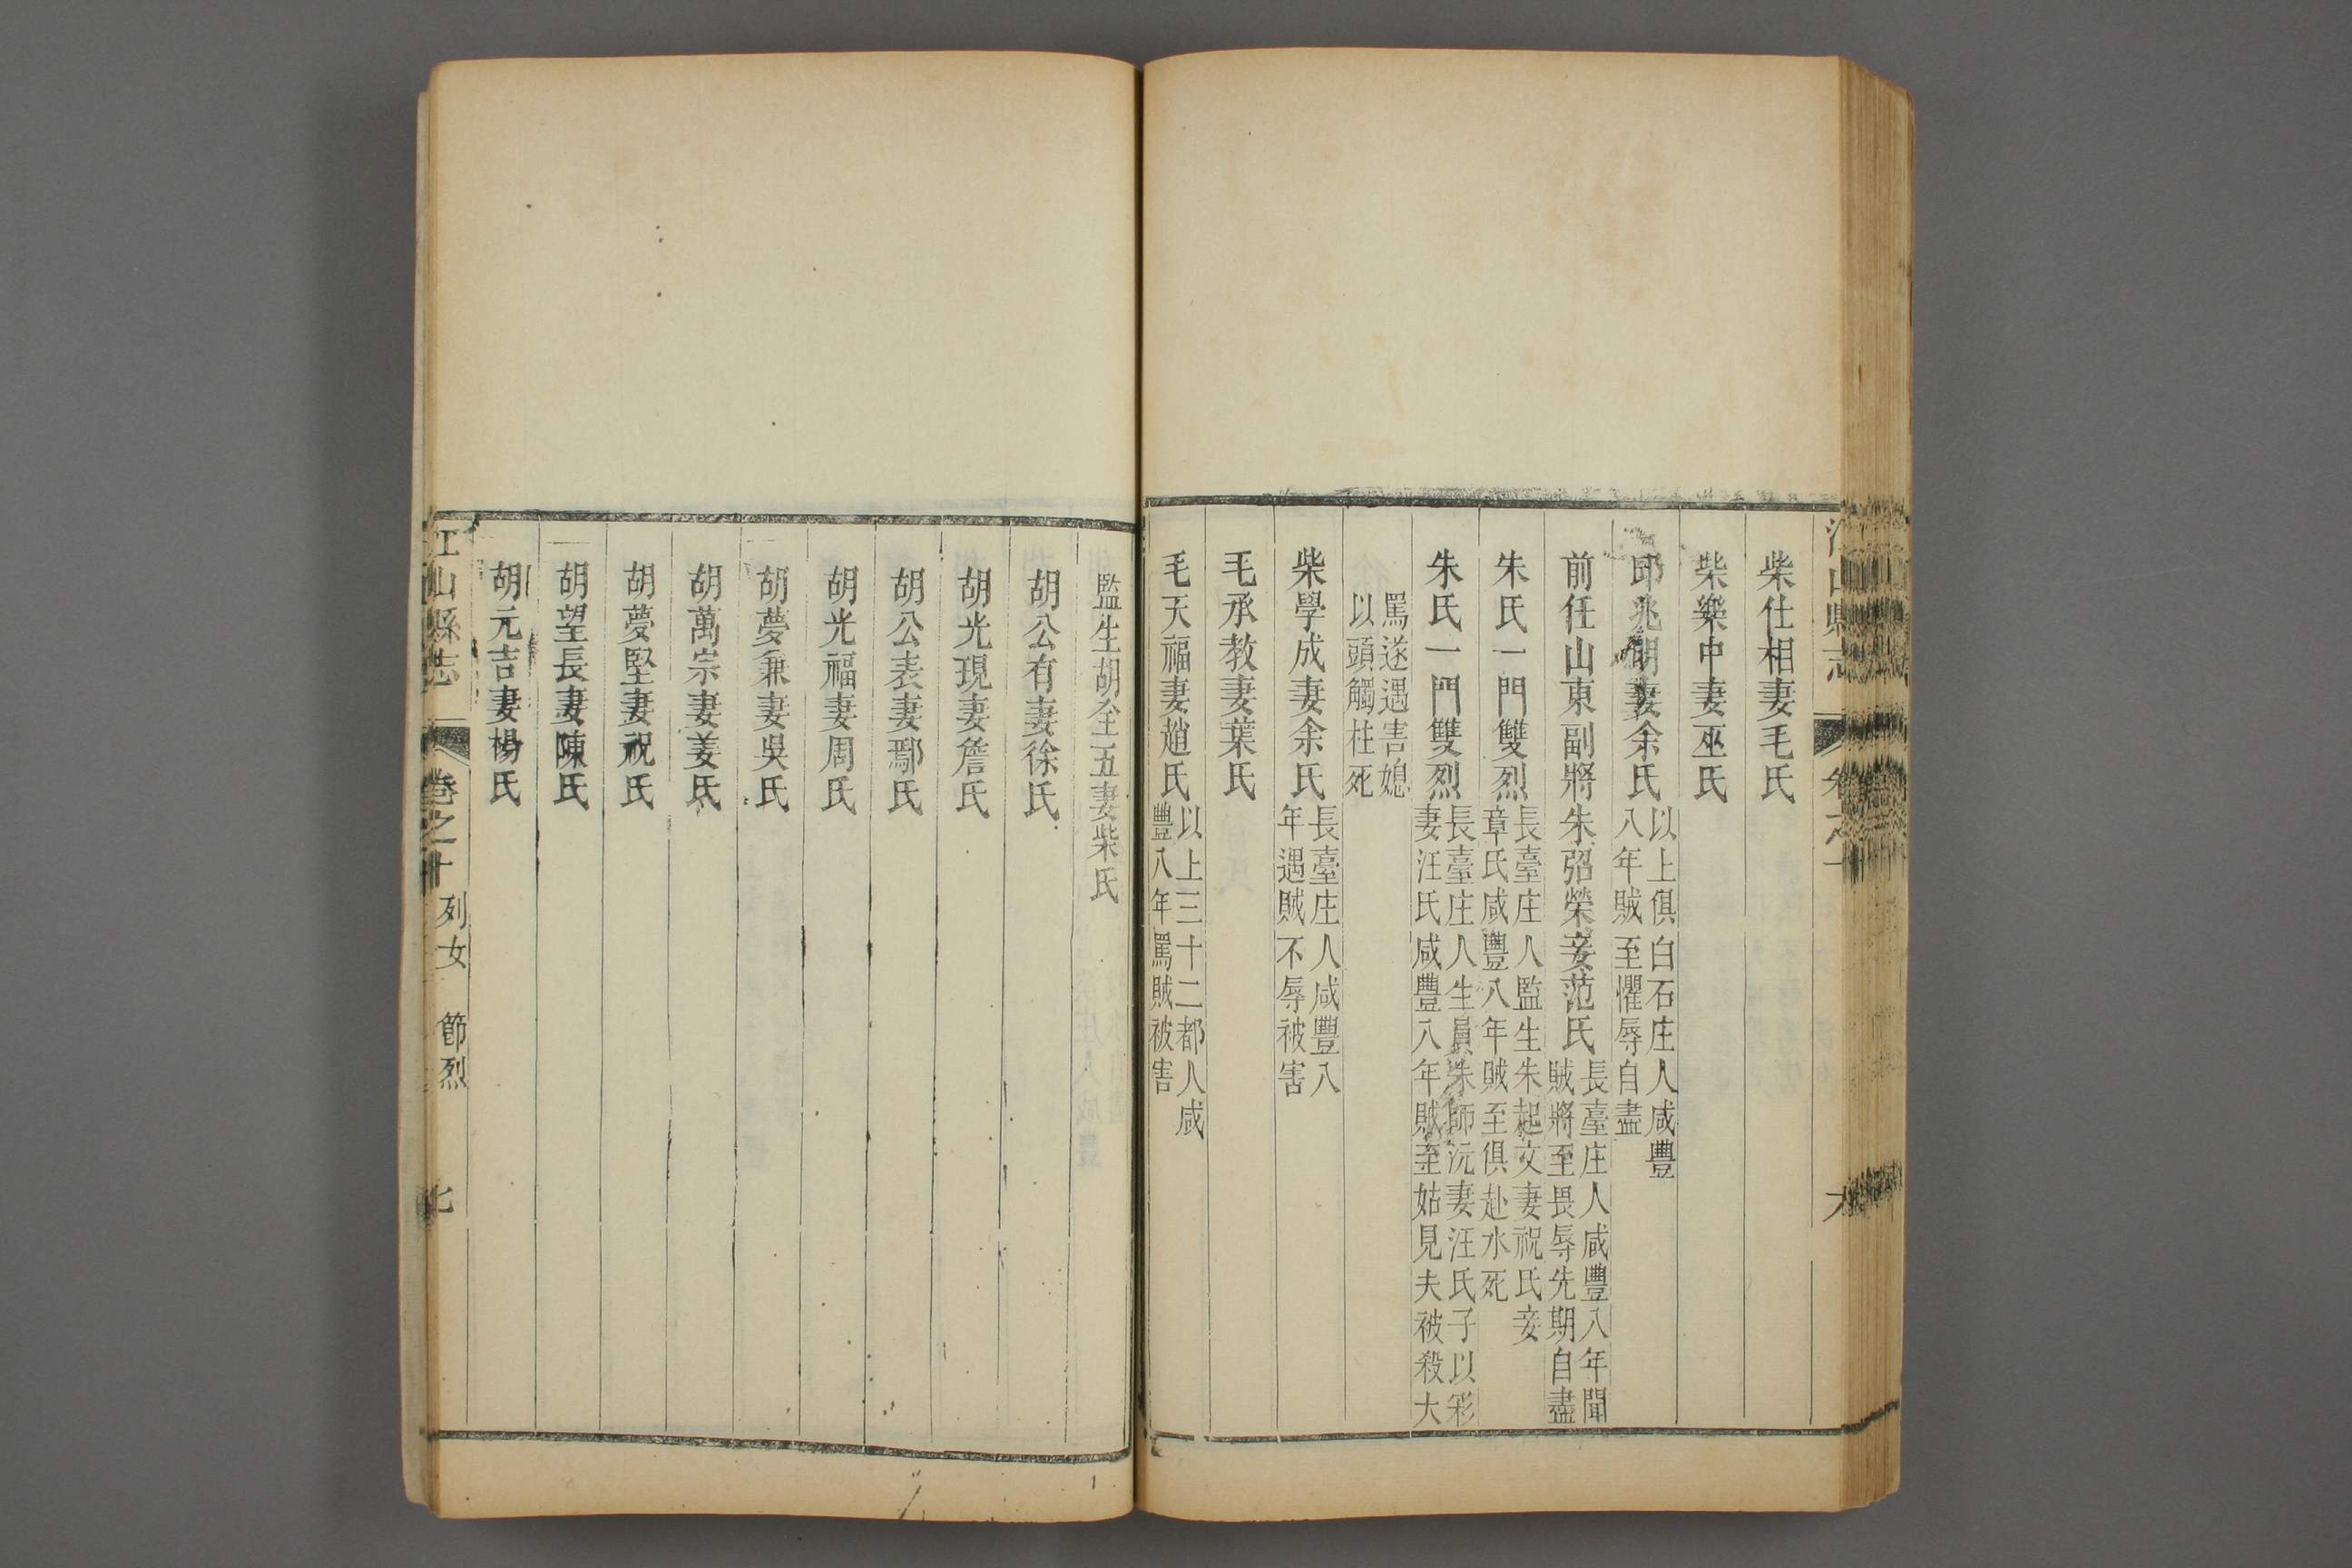 柴仕相妻毛氏
柴樂中妻巫氏
邱兆朝妻余氏以上俱白石庄人咸豐
八年賊至懼辱自盡
前任山東副將朱弨榮妾范氏長臺庄人咸豐八年聞
賊將至畏辱先期自盡
朱氏一門雙烈長臺庄人監生朱起文妻祝氏妾
章氏咸豐八年賊至俱赴水死
朱氏一門雙烈長臺庄人生員朱師沅妻汪氏子以彩
妻汪氏咸豐八年賊至姑見夫被殺大
罵遂遇害媳
以頭觸柱死
柴學成妻余氏長臺庄人咸豐八
年遇賊不辱被害
毛承教妻葉氏
毛天福妻趙氏以上三十二都人咸
豐八年罵賊被害
監生胡全五妻柴氏
胡公有妻徐氏
胡光現妻詹氏
胡公表妻鄢氏
胡光福妻周氏
胡夢兼妻吳氏
胡萬宗妻姜氏
胡夢堅妻祝氏
胡望長妻陳氏
胡元吉妻楊氏
江山縣志 卷之十 列女 節烈 七